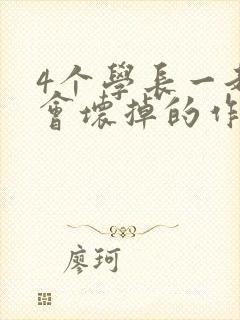 4个學長一
會壞掉的作
廖珂